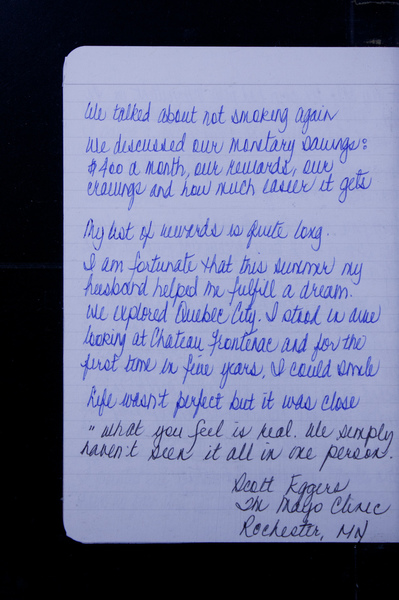 We talked about not smoking again
We discussed our monetary savings:
$400 a month, our rewards, our
cravings and how much easier it gets
My list of rewards is quite long.
I am fortunate that this summer my
husband helped me fulfill a dream.
We explored Quebec City. I stood in awe
looking at Chateau Frontenac and for the
first time in five years, I could smile
Life wasn't perfect but it was close
"What you feel is real. We simply
haven't seen it all in one person.
Scott Eggers
The Mayo Clinic
Rochester, MN